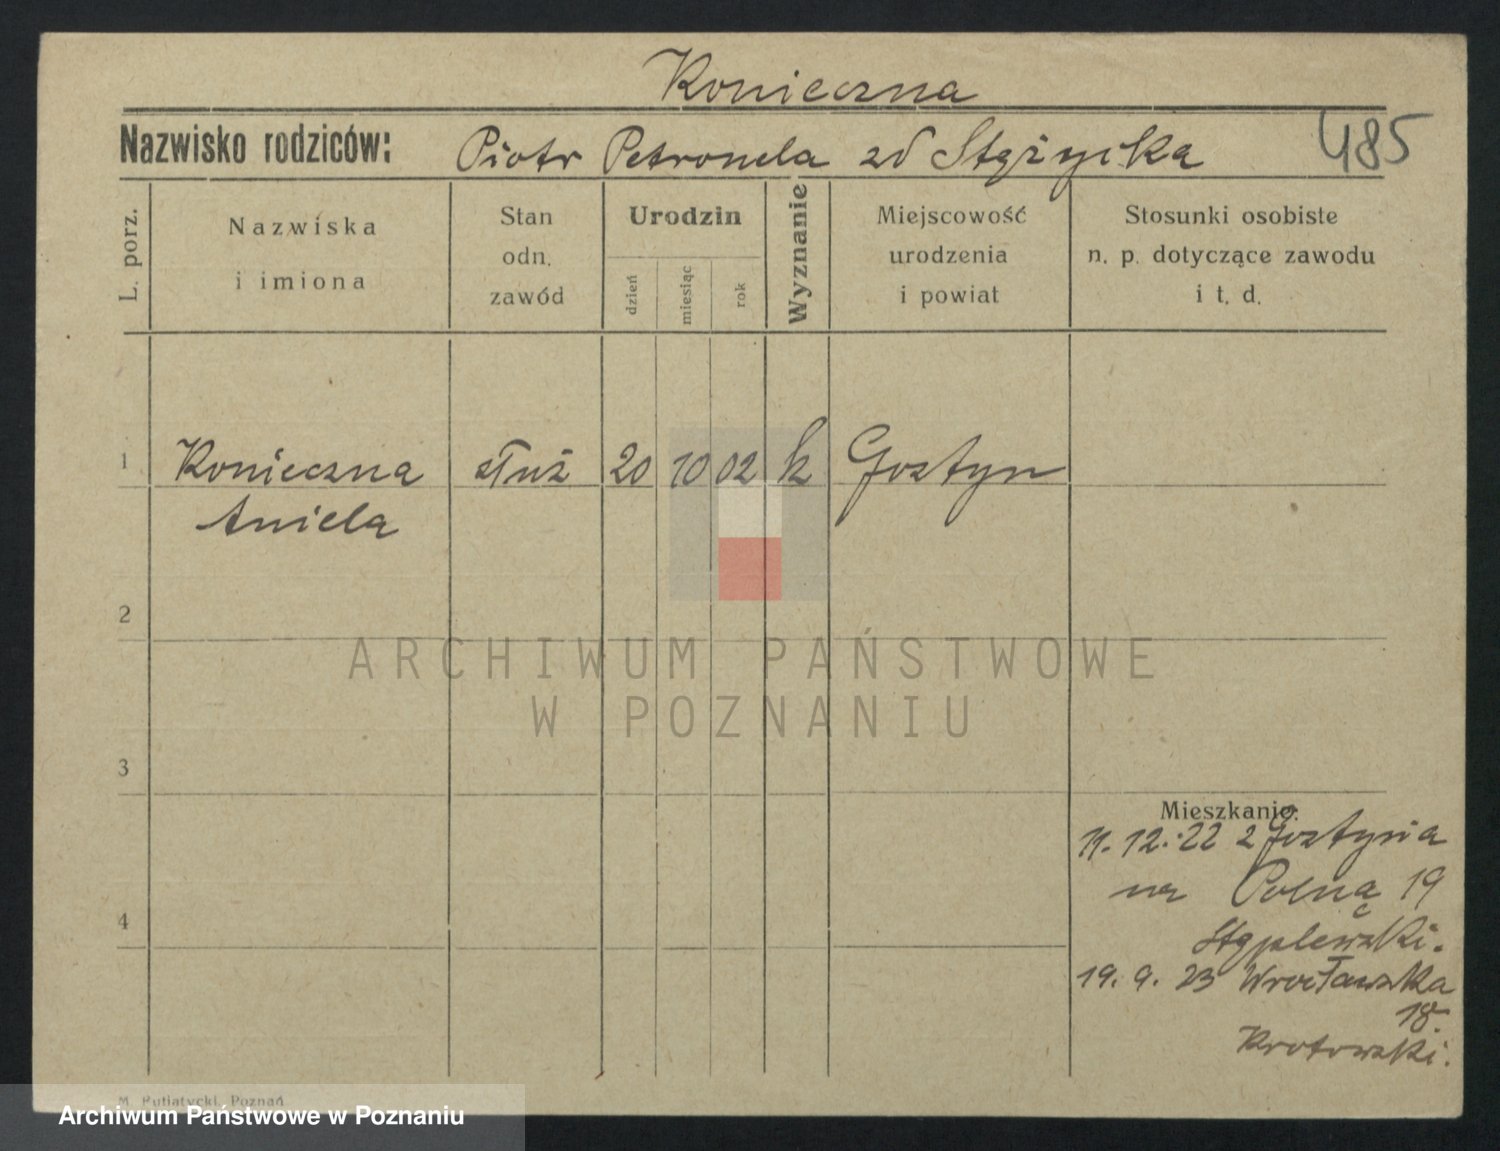 Konieczna
Nazwisko rodziców: Piotr Petronela zd Stężycka 485
L. porz.
Nazwiska
i imiona
Stan
odn.
zawód
Urodzin
dzień
miesiąc
rok
Wyznanie
Miejscowość
urodzenia
i powiat
Stosunki osobiste
n. p. dotyczące zawodu
i t. d.
1 Konieczna służ 20 10 02 k Gostyn
Aniela
2
ARCHIWUM PAŃSTWOWE
W POZNANIU
3
Mieszkanie:
11.12.22 z Gostynia
na Polną 19
19.9.23 Wrocławska
18.
Krotowski.
M. Putiatycki, Poznań
Archiwum Państwowe w Poznaniu